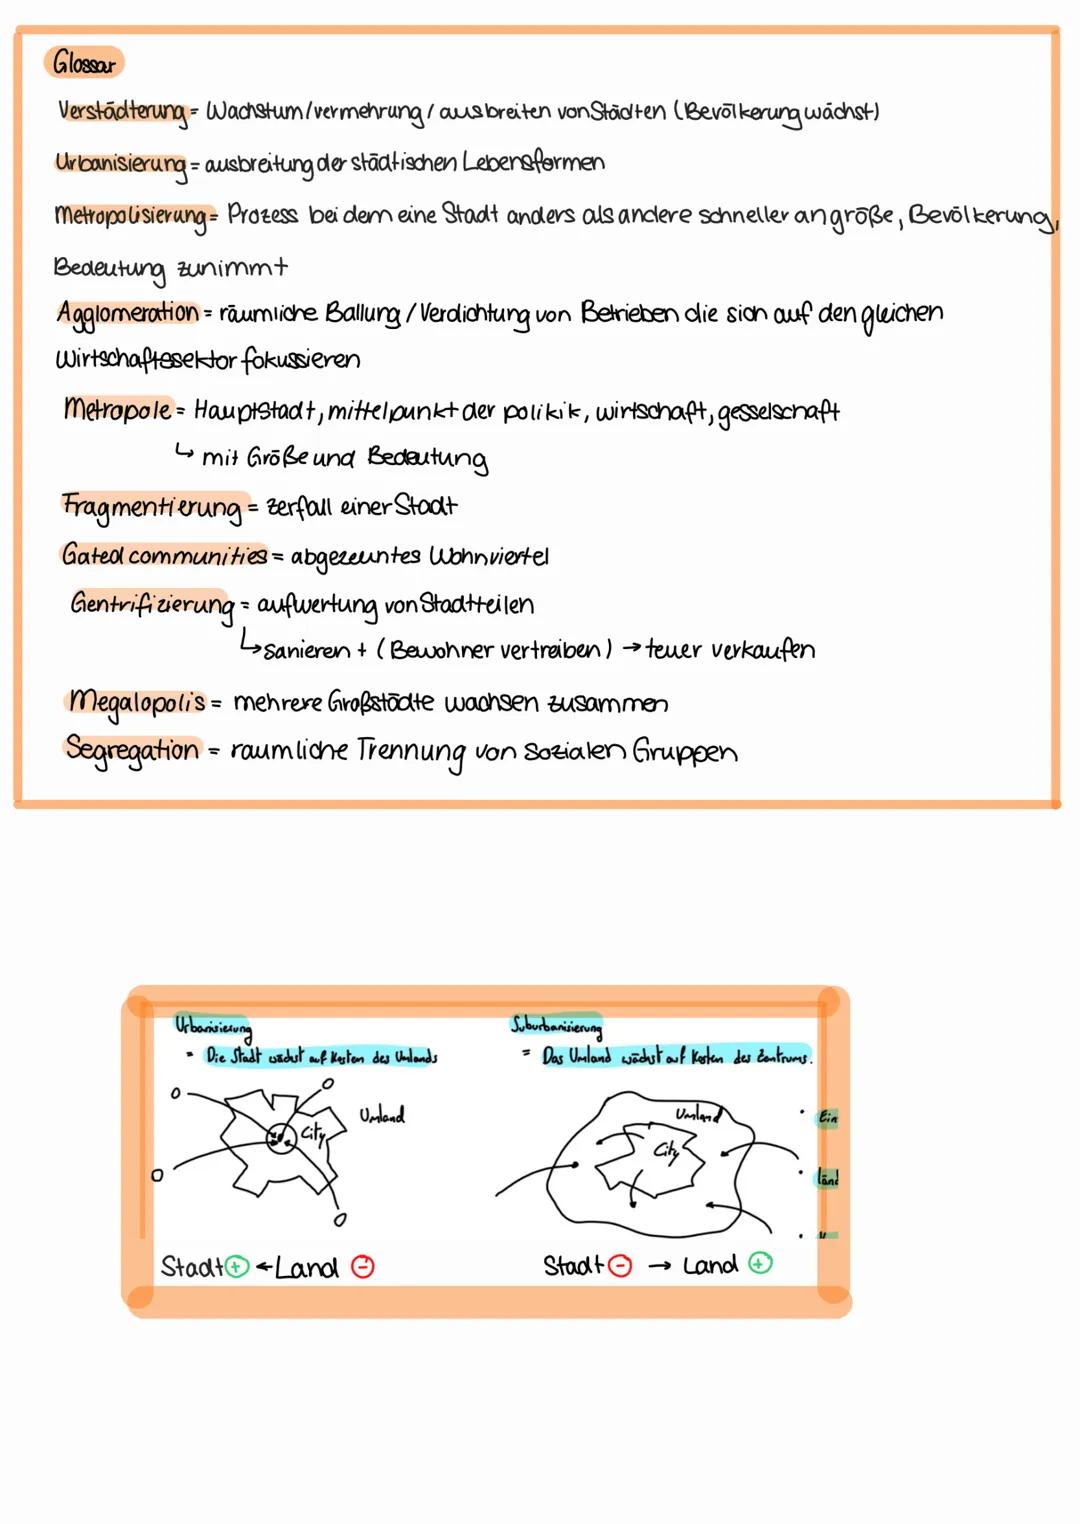 Glossar
Verstädterung = Wachstum/vermehrung/ausbreiten von Städten (Bevölkerung wächst)
Urbanisierung = ausbreitung der städtischen Lebensformen
Metropolisierung = Prozess bei dem eine Stadt anders als andere schneller an größe, Bevölkerung,
Bedeutung zunimmt
Agglomeration = räumliche Ballung/Verdichtung von Betrieben die sich auf den gleichen
Wirtschaftssektor fokussieren
Metropole = Hauptstadt, mittelpunkt der polikik, wirtschaft, gesselschaft
↳ mit Größe und Bedeutung
Fragmentierung = zerfall einer Stadt
Gated communities = abgezeuntes Wohnviertel
Gentrifizierung = aufwertung von Stadtteilen
↳ sanieren + (Bewohner vertreiben) → teuer verkaufen
Megalopolis = mehrere Großstädte wachsen zusammen
Segregation = raumliche Trennung von sozialen Gruppen
Urbanisierung
= Die Stadt wächst auf Kosten des Umlands
Umland
City
Stadt + ← Land -
Suburbanisierung
= Das Umland wächst auf Kosten des Zentrums.
Umland
City
Stadt - → Land +
• Ein
• länd